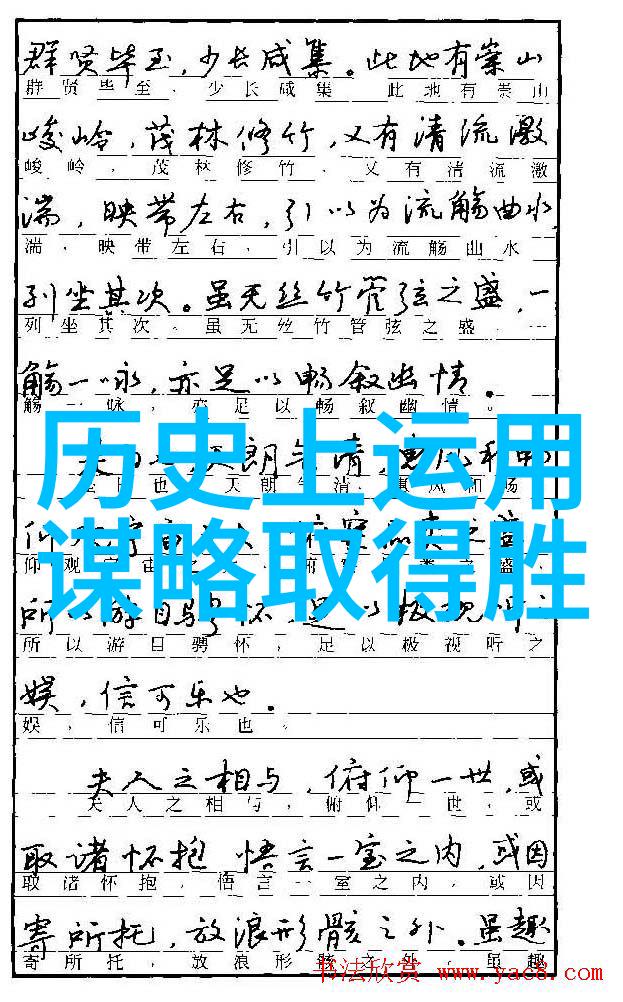 群贤毕至，少长咸集。此地有崇山
群贤毕至，少长咸集。此地有崇山
峻岭，茂林修竹，又有清流激
峻岭，茂林修竹，又有清流激
湍，映带左右，引以为流觞曲水，
湍，映带左右，引以为流觞曲水
列坐其次。虽无丝竹管弦之盛，一
列坐其次。虽无丝竹管弦之盛，一
觞一咏，亦足以畅叙幽情。
觞一咏，亦足以畅叙幽情。
历史上运用
天朗气清，惠风和畅
也，天朗气清，惠风和畅
谋略取得胜
仰观宇宙
所以游目骋怀，足以极视听
所以游目骋怀，足以极视听之
娱，信可乐也。
娱，信可乐也。
夫人之相与，俯仰一世，或
夫人之相与，俯仰一世，或
取诸怀抱 悟言一室之内，或因
取诸怀抱，悟言一室之内，或因
寄所托，放浪形骸之外。虽趣
寄所托，放浪形骸之外。虽趣
书法欣赏 www.yac8.com